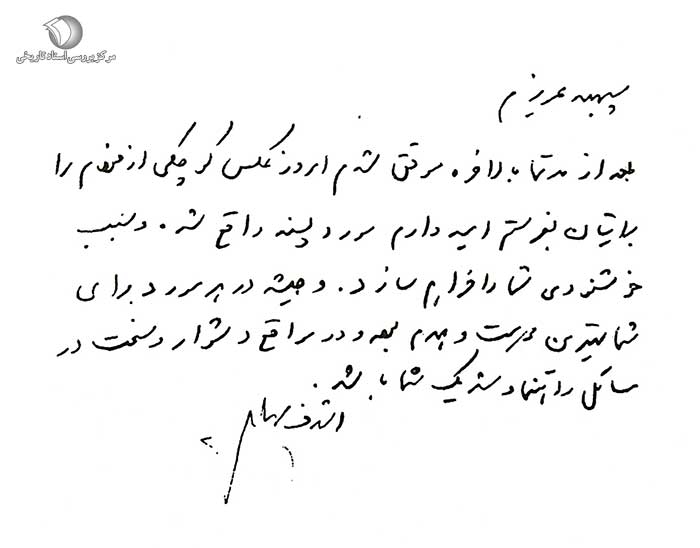 مرکز بررسی اسناد تاریخی
سپهبد عزیزم
بعد از مدتها بالاخره موفق شدم امروز عکس کوچکی از خودم را
برایتان بفرستم امیدوارم مورد پسند واقع شده و سبب
خوشنودی شما را فراهم سازد. و همیشه در هر مورد برای
شما بهترین دوست و همدم بوده و در مواقع دشوار و سخت در
مسائل راهنما و شریک شما باشد.
اشرف پهلوی